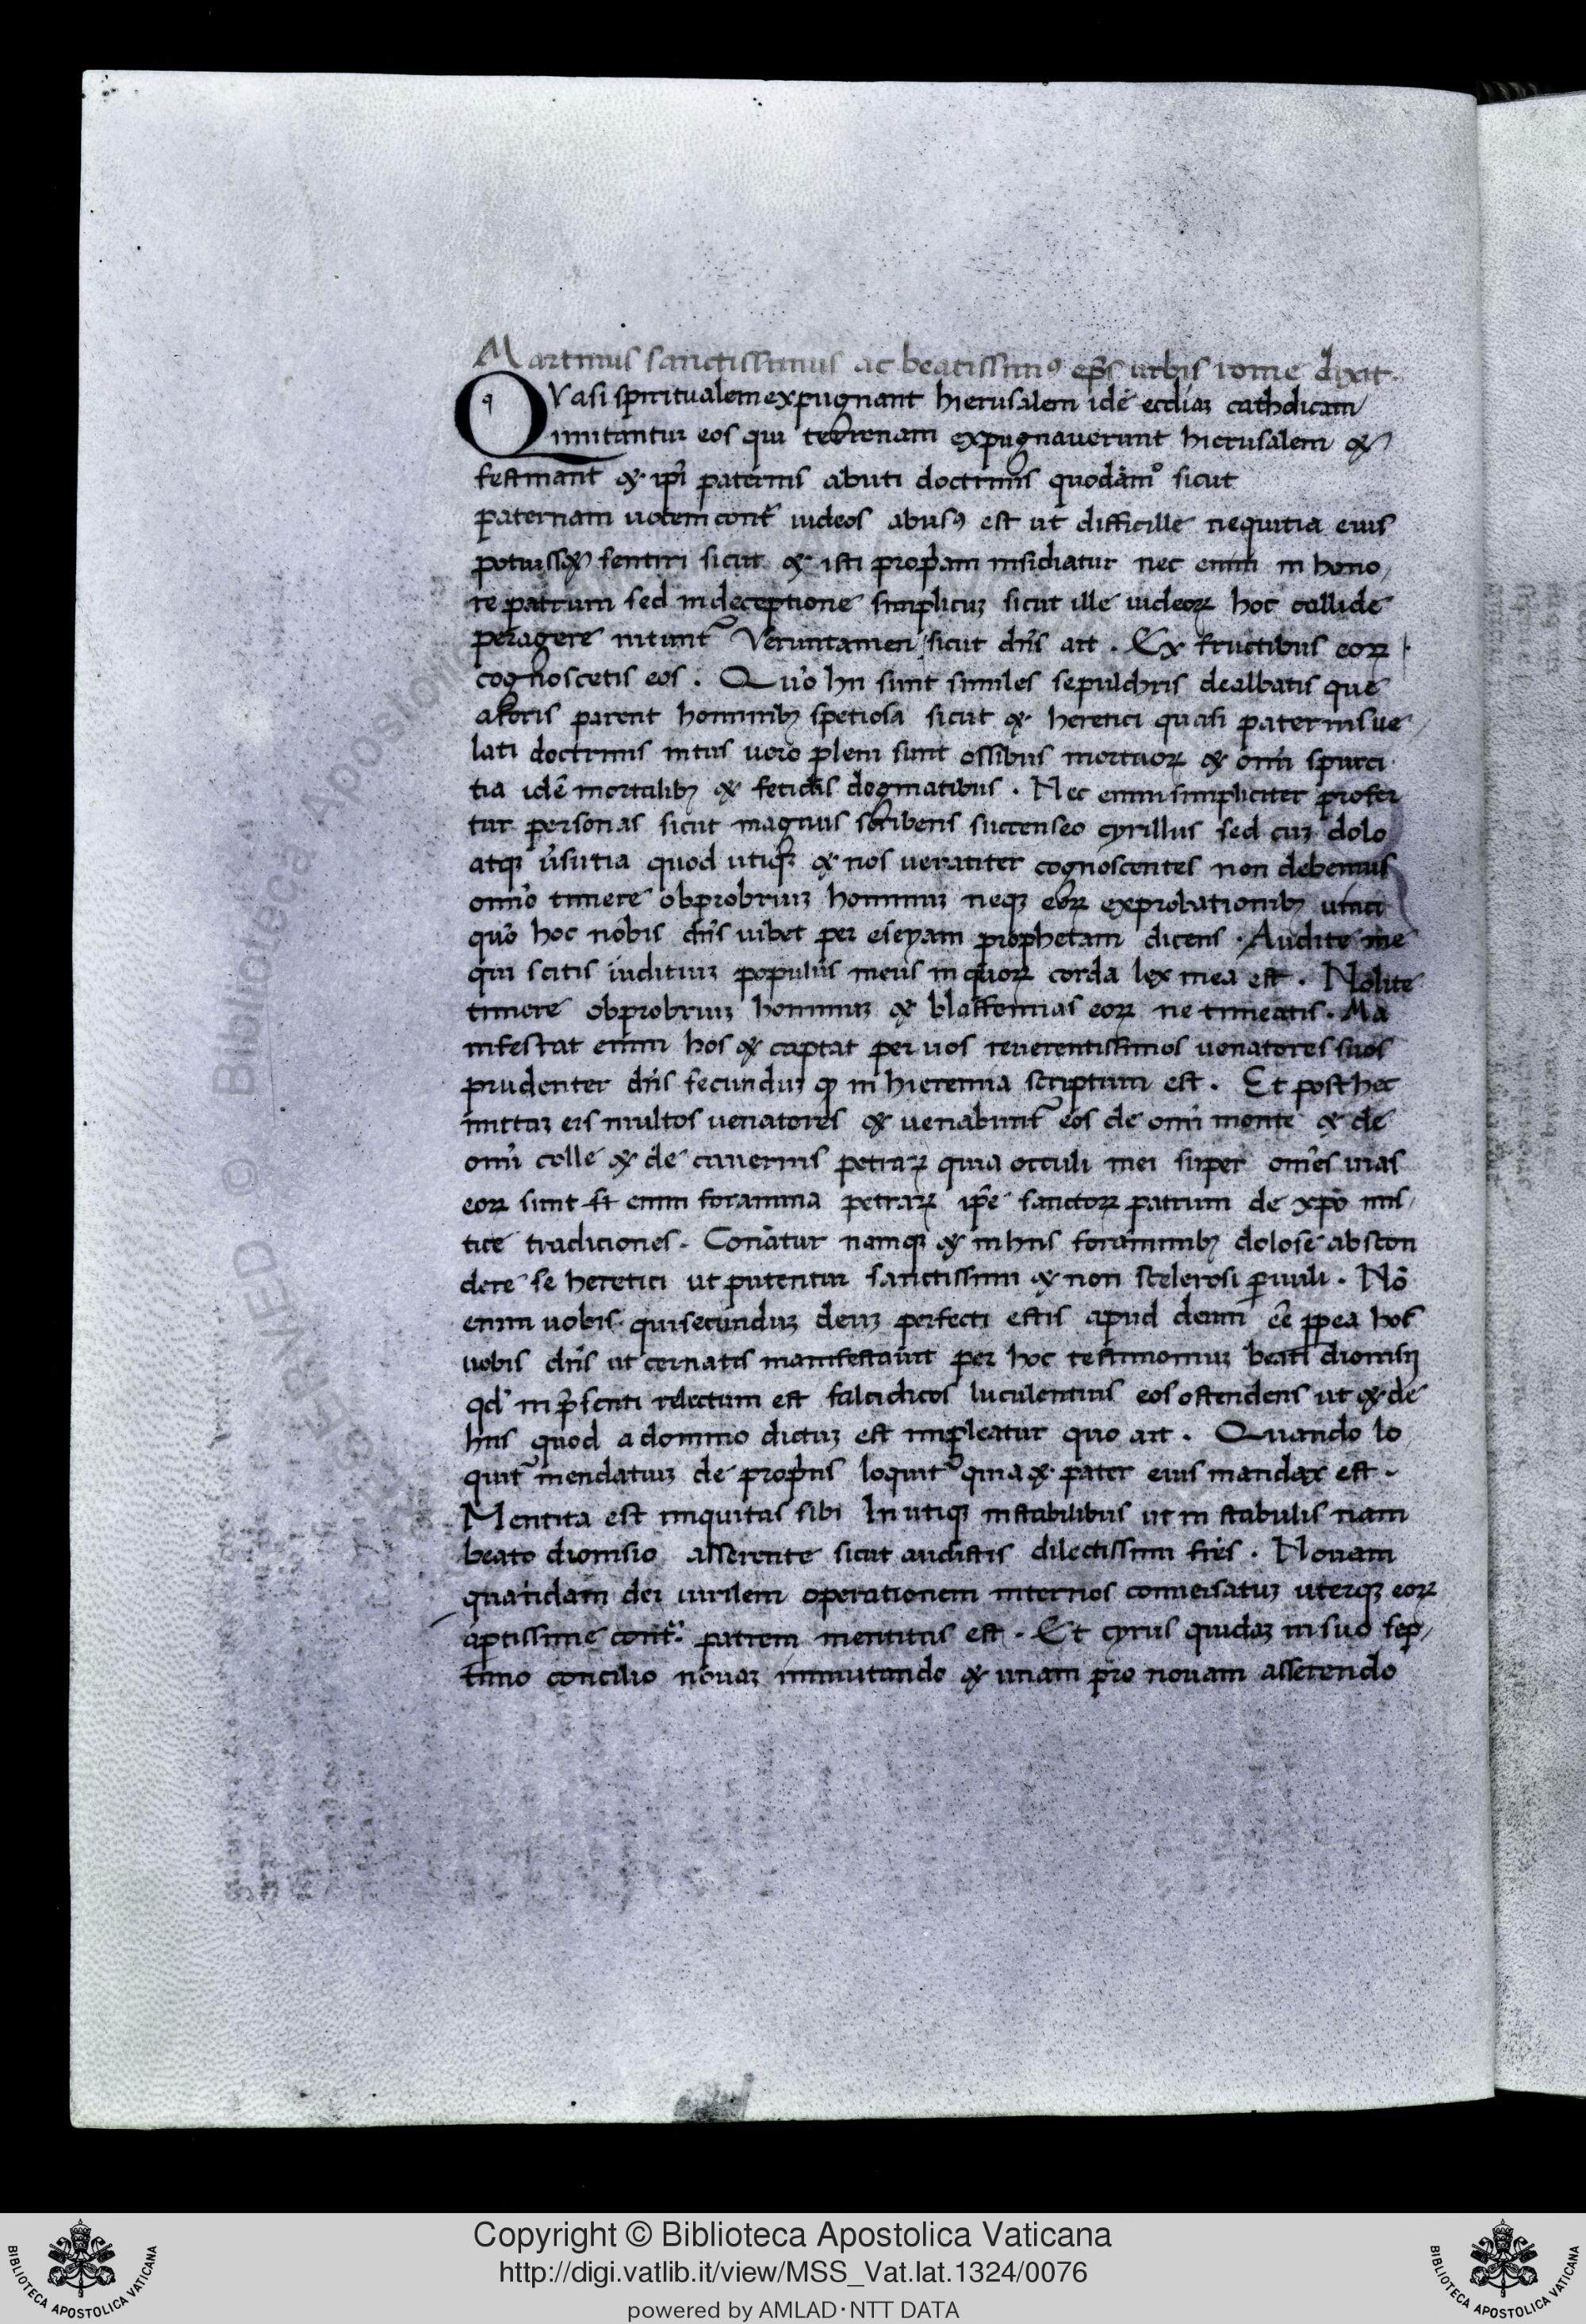 Martinus sanctissimus ac beatissimꝰ ep̃s urbis rome dixit.
QVasi spiritualem expugnant hierusalem idē eccliaꝫ catholicam
imitantur eos qui terrenam expugnauerunt hierusalem &
festinant & ip̃i paternis abuti doctrinis quodãmº sicut
paternam uocem cont̃ iudeos abusꝰ est ut difficille nequitia eius
potuiss& sentiri sicut & isti prop̃am insidiatur nec enim in hono
re patrum sed in deceptione simplicuꝫ sicut ille iudeoꝝ hoc callide
peragere nitunt̃ Veruntamen sicut dñs ait . Ex fructibus eoꝝ
cognoscetis eos . Qũo hii sunt similes sepulchris dealbatis que
aforis parent hominibꝫ spetiosa sicut & heretici quasi paternis ue
lati doctrinis intus uero pleni sunt ossibus mortuoꝝ & om̃i spurci
tia idē mortalibꝫ & fetidis dogmatibus . Nec enim simpliciter profer
tur personas sicut magnus scribens succenseo cyrillus sed cuꝫ dolo
atqꝫ ũsutia quod utiqꝫ & nos ueraciter cognoscentes non debemus
omñο timere obprobriuꝫ hominuꝫ neqꝫ eoꝝ exprobationibꝫ uinci
quõ hoc nobis dñs uibet per eseyam prophetam dicens . Audite me
qui scitis iuditiuꝫ populus meus in quoꝝ corda lex mea est . Nolite
timere obprobriuꝫ hominuꝫ & blasfemias eoꝝ ne timeatis . Ma
nifestat enim hos & captat per uos reuerentissimos uenatores suos
prudenter dñs secunduꝫ ꝙ in hieremia scriptum est . Et post hec
mittaꝫ eis multos uenatores & uenabunt̃ eos de om̃i monte & de
om̃i colle & de cauernis petraꝝ quia occuli mei super om̃es uias
eoꝝ sunt st enim foramina petraꝝ ip̃e sanctoꝝ patrum de xp̃o mis
tice tradiciones . Conatur namqꝫ & in hiis foraminibꝫ dolose abscon
dere se heretici ut putentur sanctissimi & non scelerosi ꝑuuli . Nõ
enim uobis qui secunduꝫ deuꝫ perfecti estis apud deum eē ꝓpea hos
uobis dñs ut cernatis manifestauit per hoc testimoniuꝫ beati dionisij
qd̃ in p̃senti relectum est falcidicos luculentius eos ostendens ut & de
hiis quod a domino dictuꝫ est impleatur quo ait . Quando lo
quit̃ mendatiuꝫ de propriis loquit̃ quia & pater eius mandax est .
Mentita est iniquitas sibi In utiqꝫ instabilibus ut in stabulis nam
beato dionisio asserente sicut audistis dilectissimi fr̃es . Nouam
quandam dei uirilem operationem inter nos conuersatuꝫ uterqꝫ eoꝝ
aptissime cont̃ . patrem mentitus est . Et cyrus quidaꝫ in suo sep
timo concilio nouaꝫ immutando & unam pro nouam asserendo
Copyright © Biblioteca Apostolica Vaticana
http://digi.vatlib.it/view/MSS_Vat.lat.1324/0076
powered by AMLAD·NTT DATA